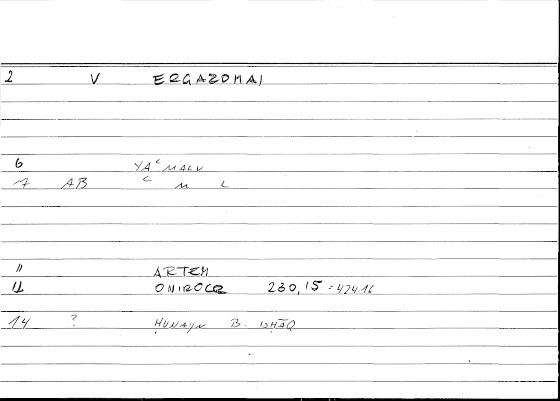 2 V ERGAZOMAI
6 YAʿMALU
7 AB ʿ M L
11 ARTEM
12 ONIROCR 230,15 = 424 16
14 ? ḤUNAYN B. ISḤĀQ